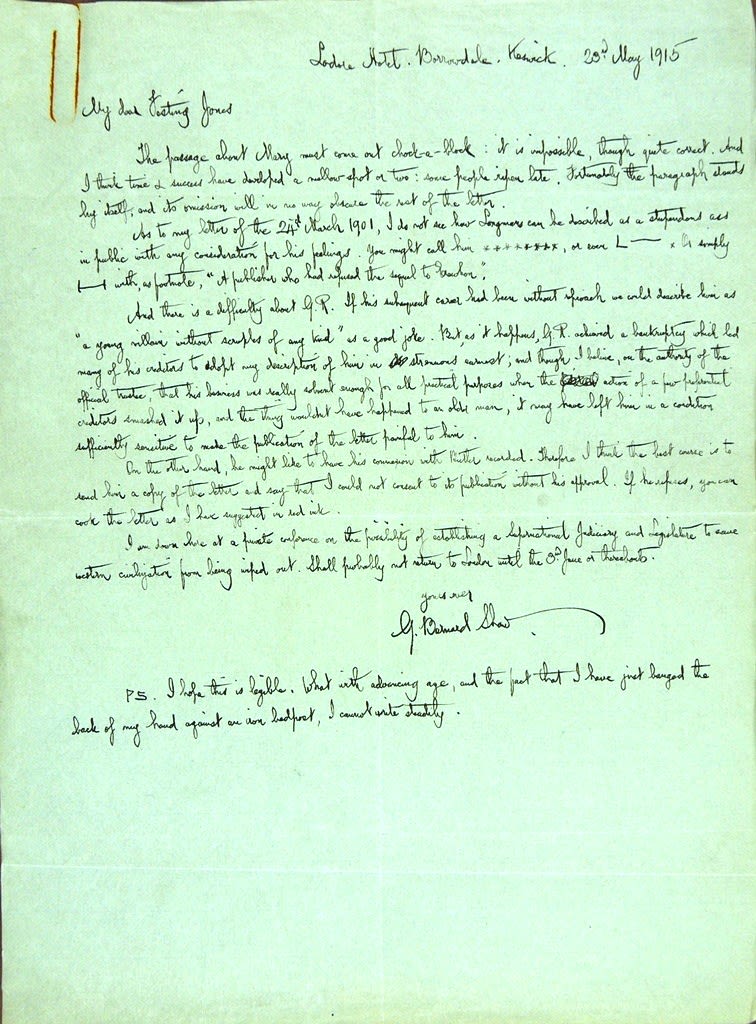 Lodore Hotel. Borrowdale. Keswick. 23rd May 1915
My dear Festing Jones
The passage about Mary must come out chock-a-block: it is impossible, though quite correct. And
I think time & success have developed a mellow spot or two: some people ripen late. Fortunately the paragraph stands
by itself, and its omission will in no way obscure the rest of the letter.
As to my letter of the 24th March 1901, I do not see how Longmans can be described as a stupendous ass
in public with any consideration for his feelings. You might call him ********, or even L—— . Or simply
L—— with, as footnote, "A publisher who had refused the sequel to Erewhon".
And there is a difficulty about G.R. If his subsequent career had been without reproach we could describe him as
"a young villain without scruples of any kind" as a good joke. But as it happens, G.R. achieved a bankruptcy which led
many of his creditors to adopt my description of him in strenuous earnest; and though I believe, on the authority of the
official trustee, that his business was really solvent enough for all practical purposes when the action of a few preferential
creditors smashed it up, and the thing wouldn't have happened to an older man, it may have left him in a condition
sufficiently sensitive to make the publication of the letter painful to him.
On the other hand, he might like to have his connexion with Butler recorded. Therefore I think the best course is to
send him a copy of the letter and say that I could not consent to its publication without his approval. If he refuses, you can
cook the letter as I have suggested in red ink.
I am down here at a private conference on the possibility of establishing a Supernational Judiciary and Legislature to save
western civilization from being wiped out. Shall probably not return to London until the 3rd June or thereabouts.
yours ever
G. Bernard Shaw
PS. I hope this is legible. What with advancing age, and the fact that I have just banged the
back of my hand against an iron bedpost, I cannot write steadily.